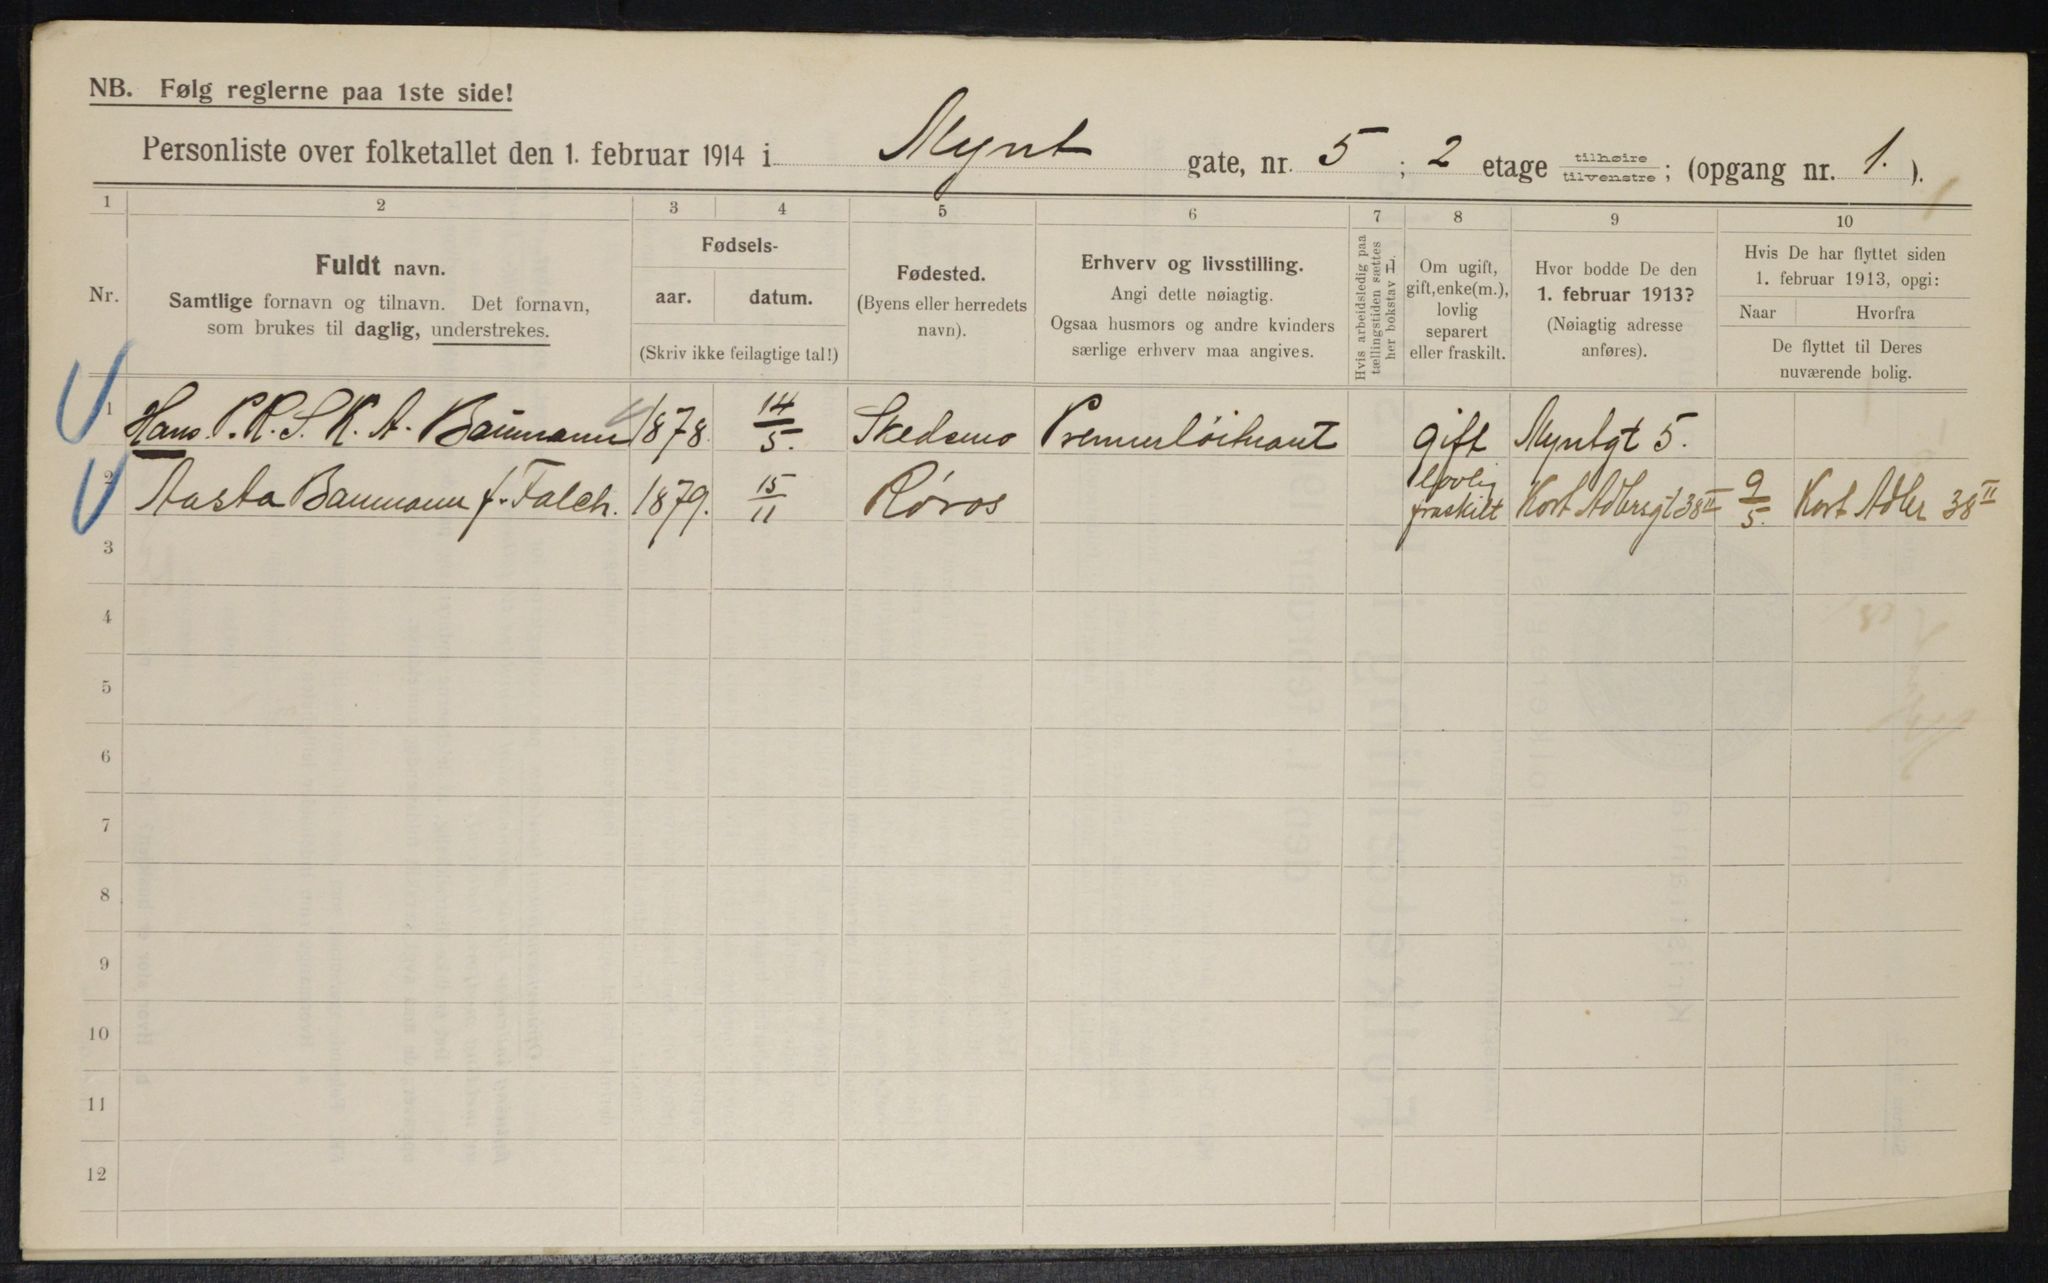 NB. Følg reglerne paa 1ste side!
Personliste over folketallet den 1. februar 1914 i Mynt gate, nr. 5 ; 2 etage tilhøire tilvenstre ; (opgang nr. 1. ).
1 2 3 4 5 6 7 8 9 10
Nr.
Fuldt navn.
Samtlige fornavn og tilnavn. Det fornavn,
som brukes til daglig, understrekes.
Fødsels-
aar. datum.
(Skriv ikke feilagtige tal!)
Fødested.
(Byens eller herredets
navn).
Erhverv og livsstilling.
Angi dette nøiagtig.
Ogsaa husmors og andre kvinders
særlige erhverv maa angives.
Hvis arbeidsledig paa
tællingstiden sættes
her bokstav L
Om ugift,
gift, enke(m.),
lovlig
separert
eller fraskilt.
Hvor bodde De den
1. februar 1913?
(Nøiagtig adresse
anføres).
Hvis De har flyttet siden
1. februar 1913, opgi:
Naar Hvorfra
De flyttet til Deres
nuværende bolig.
1 Hans P. R. S. K. A. Baumann 1878. 14/5. Skedsmo Premierløitnant gift Myntgt 5.
2 Aasta Baumann f. Falch. 1879. 15/11 Røros lovlig fraskilt Kort Adlersgt 38 II 9/5. Kort Adler 38 II
3
4
5
6
7
8
9
10
11
12